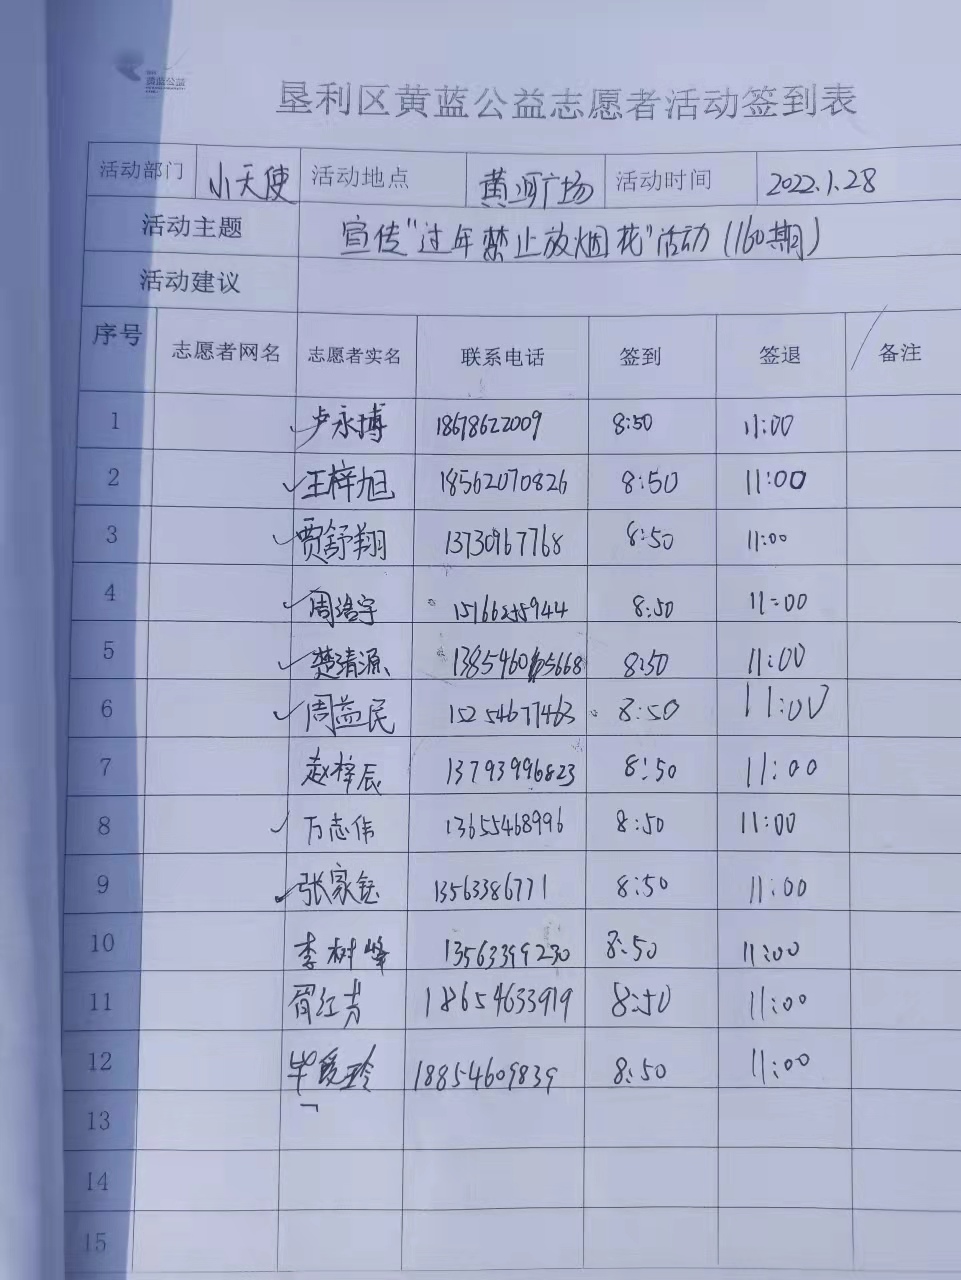 黄蓝公益
垦利区黄蓝公益志愿者活动签到表
活动部门 小天使 活动地点 黄河广场 活动时间 2022.1.28
活动主题 宣传"过年禁止放烟花"活动(160期)
活动建议
序号 志愿者网名 志愿者实名 联系电话 签到 签退 备注
1 卢永博 18678622009 8:50 11:00
2 王梓旭 18562070826 8:50 11:00
3 贾舒翔 13730967768 8:50 11:00
4 周浩宇 15166255944 8:50 11:00
5 楚清源 8:50 11:00
6 周益民 15254677463 8:50 11:00
7 赵梓辰 13793996823 8:50 11:00
8 万志伟 13655468996 8:50 11:00
9 张家钰 13563386771 8:50 11:00
10 李树峰 13563399230 8:50 11:00
11 胥江芳 18654633919 8:50 11:00
12 毕爱玲 18854609839 8:50 11:00
13
14
15